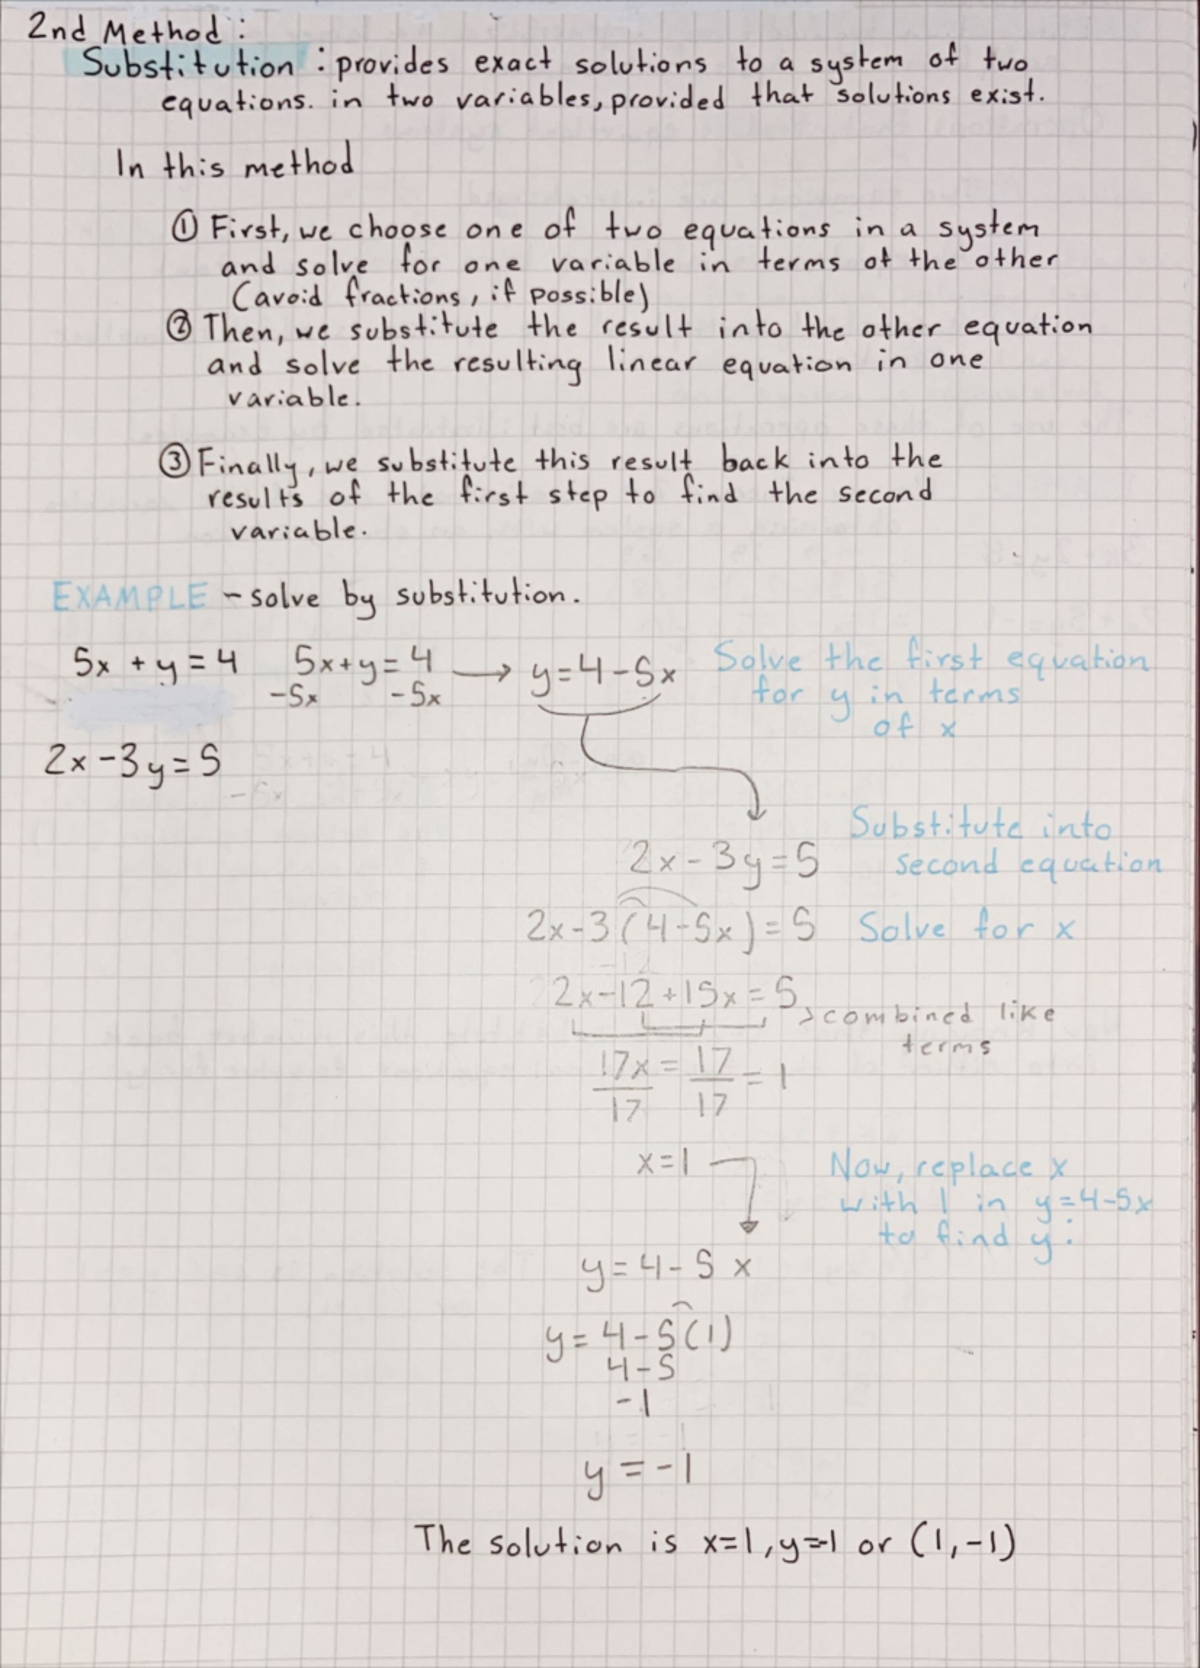 2nd Method:
Substitution: provides exact solutions to a system of two
equations. in two variables, provided that solutions exist.
In this method
① First, we choose one of two equations in a system
and solve for one variable in terms of the other
(avoid fractions, if possible)
② Then, we substitute the result into the other equation
and solve the resulting linear equation in one
variable.
③ Finally, we substitute this result back into the
results of the first step to find the second
variable.
EXAMPLE - solve by substitution.
5x + y = 4 5x+y=4 → y=4-5x Solve the first equation
-5x -5x for y in terms
of x
2x-3y=5
Substitute into
2x-3y=5 second equation
2x-3(4-5x)=5 Solve for x
2x-12+15x=5
>combined like
terms
17x/17 = 17/17 = 1
x=1 Now, replace x
with 1 in y=4-5x
to find y:
y=4-5x
y=4-5(1)
4-5
-1
y=-1
The solution is x=1, y=-1 or (1,-1)